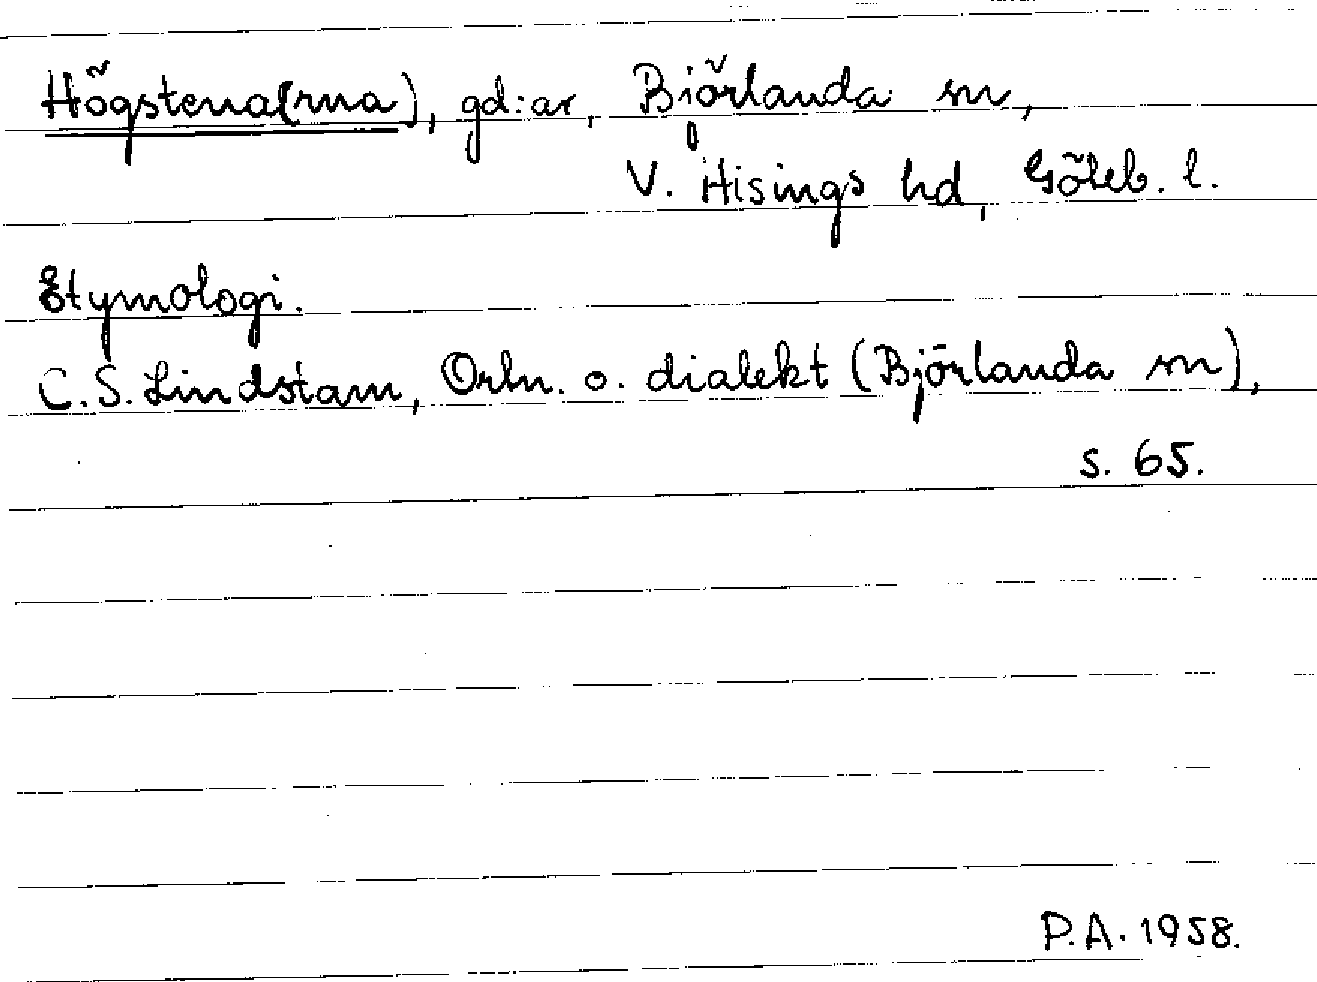 Högstena(rna), gd:ar, Björlanda sn,
V. Hisings hd, Göteb. l.
Etymologi.
C.S. Lindstam, Ortn. o. dialekt (Björlanda sn),
s. 65.
P.A. 1958.